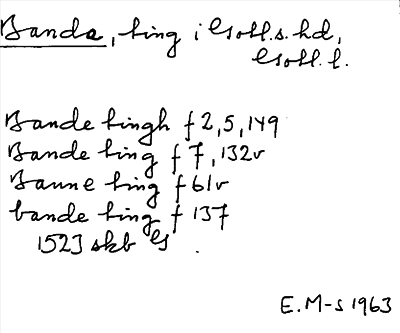 Banda, ting i Gotl.s.hd,
Gotl. l.
Bande tingh f 2, 5, 149
Bande ting f 7, 132v
Banne ting f 61v
bande ting f 137
1523 skb G
E. M-s 1963